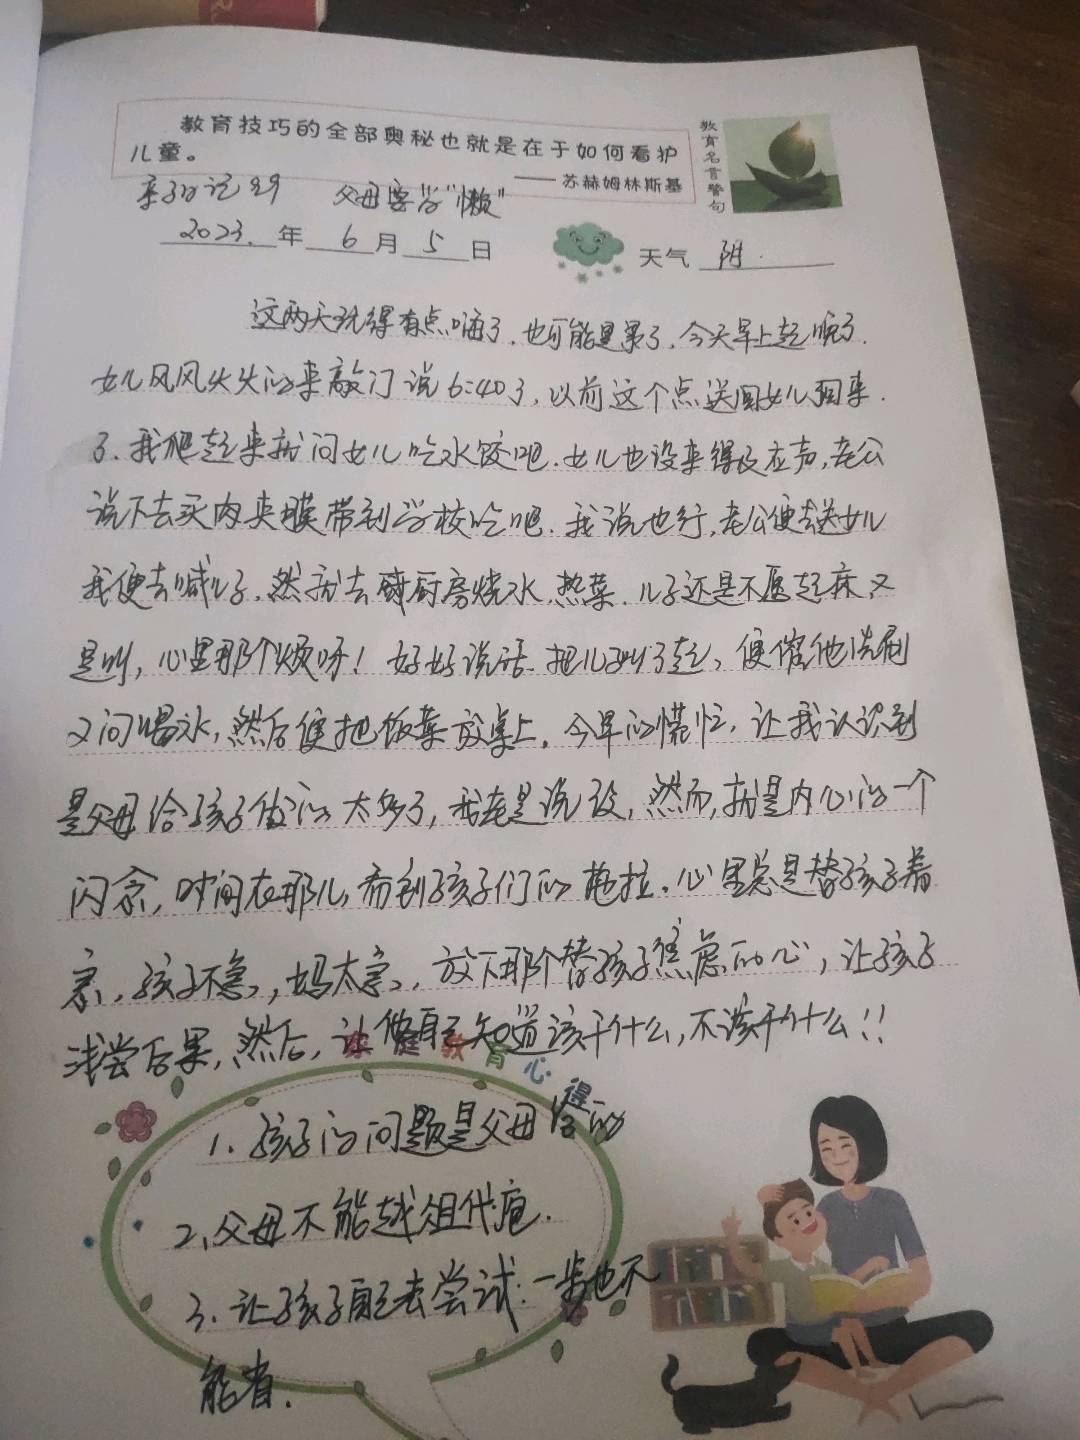 教育技巧的全部奥秘也就是在于如何看护
儿童。
——苏赫姆林斯基
教育名言警句
亲子日记 父母要学“懒”
2023年6月5日 天气 阴.
这两天玩得有点嗨了.也可能是累了.今天早上起晚了.
女儿风风火火的来敲门说6:40了,以前这个点送闺女儿回来.
了.我爬起来就问女儿吃水饺吧.女儿也没来得及应声,老公
说下去买肉夹馍带到学校吃吧.我说也行,老公便去送女儿
我便去喊儿子,然就去厨房烧水.热菜.儿子还是不愿起床又
是叫,心里那个烦呀!好好说话.把儿叫了起,便催他洗刷
又问喝水,然后便把饭菜放桌上.今早的慌忙,让我认识到
是父母给孩子做的太多了,我老是说没,然而,就是内心的一个
闪念,时间在那儿,看到孩子们的拖拉.心里总是替孩子着
急,孩子不急,妈太急,放下那个替孩子焦虑的心,让孩子
浅尝后果,然后,让他自己知道该干什么,不该干什么!!
家庭教育心得
1.孩子的问题是父母给的
2,父母不能越俎代庖.
3.让孩子自己去尝试:一步也不
能省.